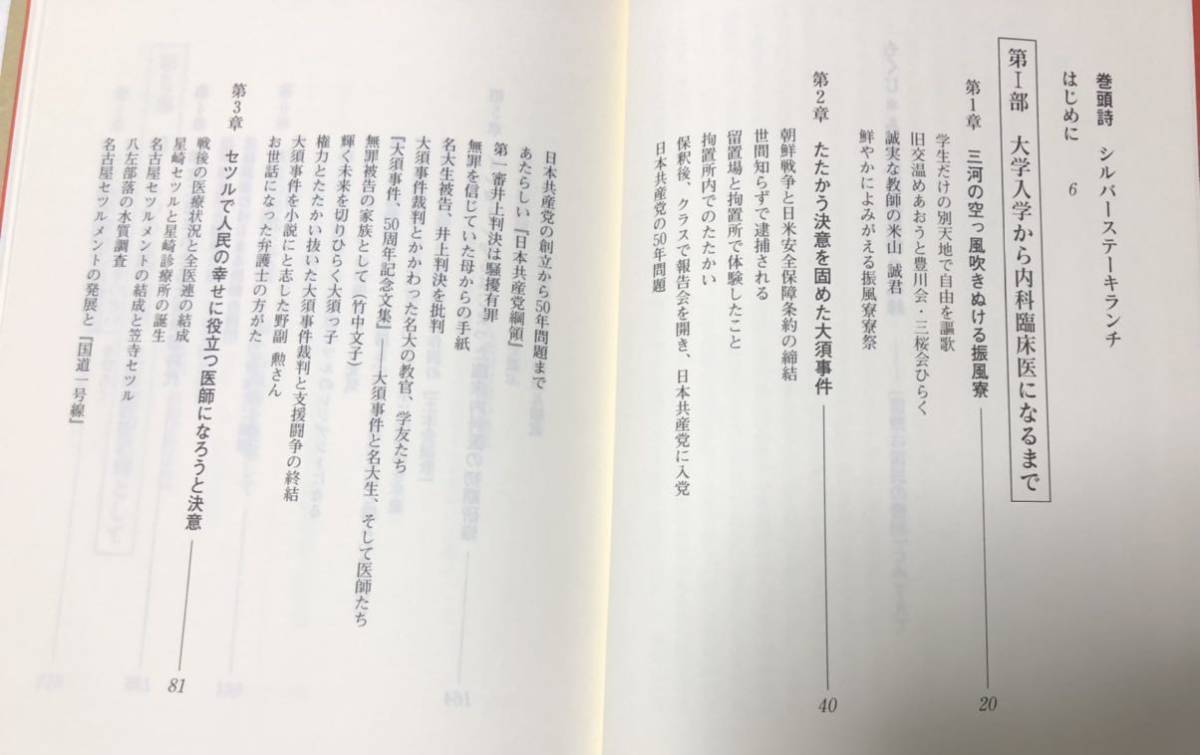 巻頭詩 シルバーステーキランチ
はじめに 6
第Ⅰ部 大学入学から内科臨床医になるまで
第1章 三河の空っ風吹きぬける振風寮 20
学生だけの別天地で自由を謳歌
旧交温めあおうと豊川会・三桜会ひらく
誠実な教師の米山 誠君
鮮やかによみがえる振風寮寮祭
第2章 たたかう決意を固めた大須事件 40
朝鮮戦争と日米安全保障条約の締結
世間知らずで逮捕される
留置場と拘置所で体験したこと
拘置所内でのたたかい
保釈後、クラスで報告会を開き、日本共産党に入党
日本共産党の50年問題
日本共産党の創立から50年問題まで
あたらしい『日本共産党綱領』
第一審井上判決は騒擾有罪
無罪を信じていた母からの手紙
名大生被告、井上判決を批判
大須事件裁判とかかわった名大の教官、学友たち
『大須事件、50周年記念文集』――大須事件と名大生、そして医師たち
無罪被告の家族として(竹中文子)
輝く未来を切りひらく大須っ子
権力とたたかい抜いた大須事件裁判と支援闘争の終結
大須事件を小説にと志した野副 勲さん
お世話になった弁護士の方がた
第3章 セツルで人民の幸せに役立つ医師になろうと決意 81
戦後の医療状況と全医連の結成
星崎セツルと星崎診療所の誕生
名古屋セツルメントの結成と笠寺セツル
八左部落の水質調査
名古屋セツルメントの発展と『国道一号線』